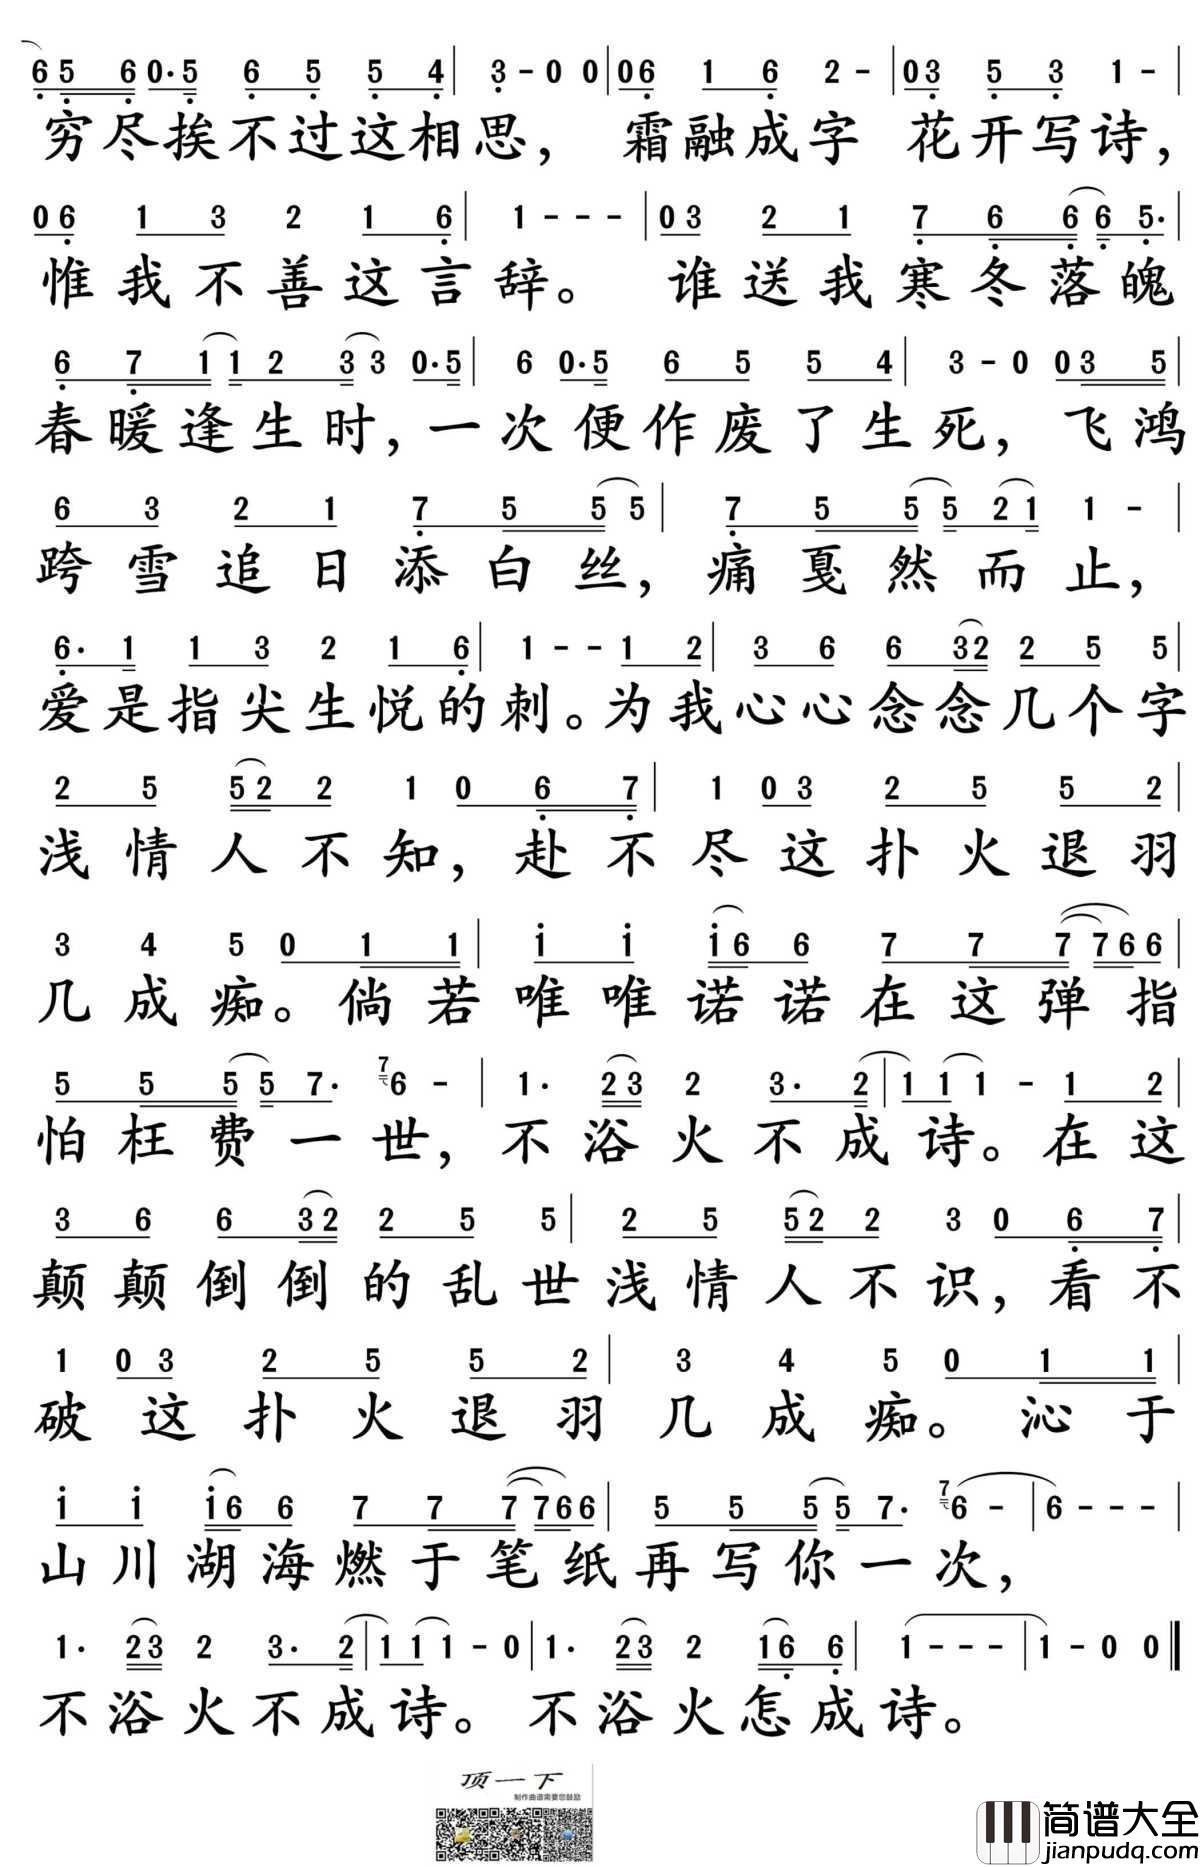 6 5 6 0·5 6 5 5 4 | 3 - 0 0 | 0 6 1 6 2 - | 0 3 5 3 1 - |
穷尽挨不过这相思，霜融成字 花开写诗，
0 6 1 3 2 1 6 | 1 - - - | 0 3 2 1 7 6 6 6 5· |
惟我不善这言辞。谁送我寒冬落魄
6 7 1 1 2 3 3 0·5 | 6 0·5 6 5 5 4 | 3 - 0 0 3 5 |
春暖逢生时，一次便作废了生死，飞鸿
6 3 2 1 7 5 5 5 | 7 5 5 5 2 1 1 - |
跨雪追日添白丝，痛戛然而止，
6· 1 1 3 2 1 6 | 1 - - 1 2 | 3 6 6 3 2 2 5 5 |
爱是指尖生悦的刺。为我心心念念几个字
2 5 5 2 2 1 0 6 7 | 1 0 3 2 5 5 2 |
浅情人不知，赴不尽这扑火退羽
3 4 5 0 1 1 | 1 1 1 6 6 7 7 7 7 6 6 |
几成痴。倘若唯唯诺诺在这弹指
5 5 5 5 7· 7 6 - | 1· 2 3 2 3· 2 | 1 1 1 - 1 2 |
怕枉费一世，不浴火不成诗。在这
3 6 6 3 2 2 5 5 | 2 5 5 2 2 3 0 6 7 |
颠颠倒倒的乱世浅情人不识，看不
1 0 3 2 5 5 2 | 3 4 5 0 1 1 |
破这扑火退羽几成痴。沁于
1 1 1 6 6 7 7 7 7 6 6 | 5 5 5 5 7· 7 6 - | 6 - - - |
山川湖海燃于笔纸再写你一次，
1· 2 3 2 3· 2 | 1 1 1 - 0 | 1· 2 3 2 1 6 6 | 1 - - - | 1 - 0 0 ‖
不浴火不成诗。不浴火怎成诗。
顶一下
制作曲谱需要您鼓励
简谱大全
jianpudq.com